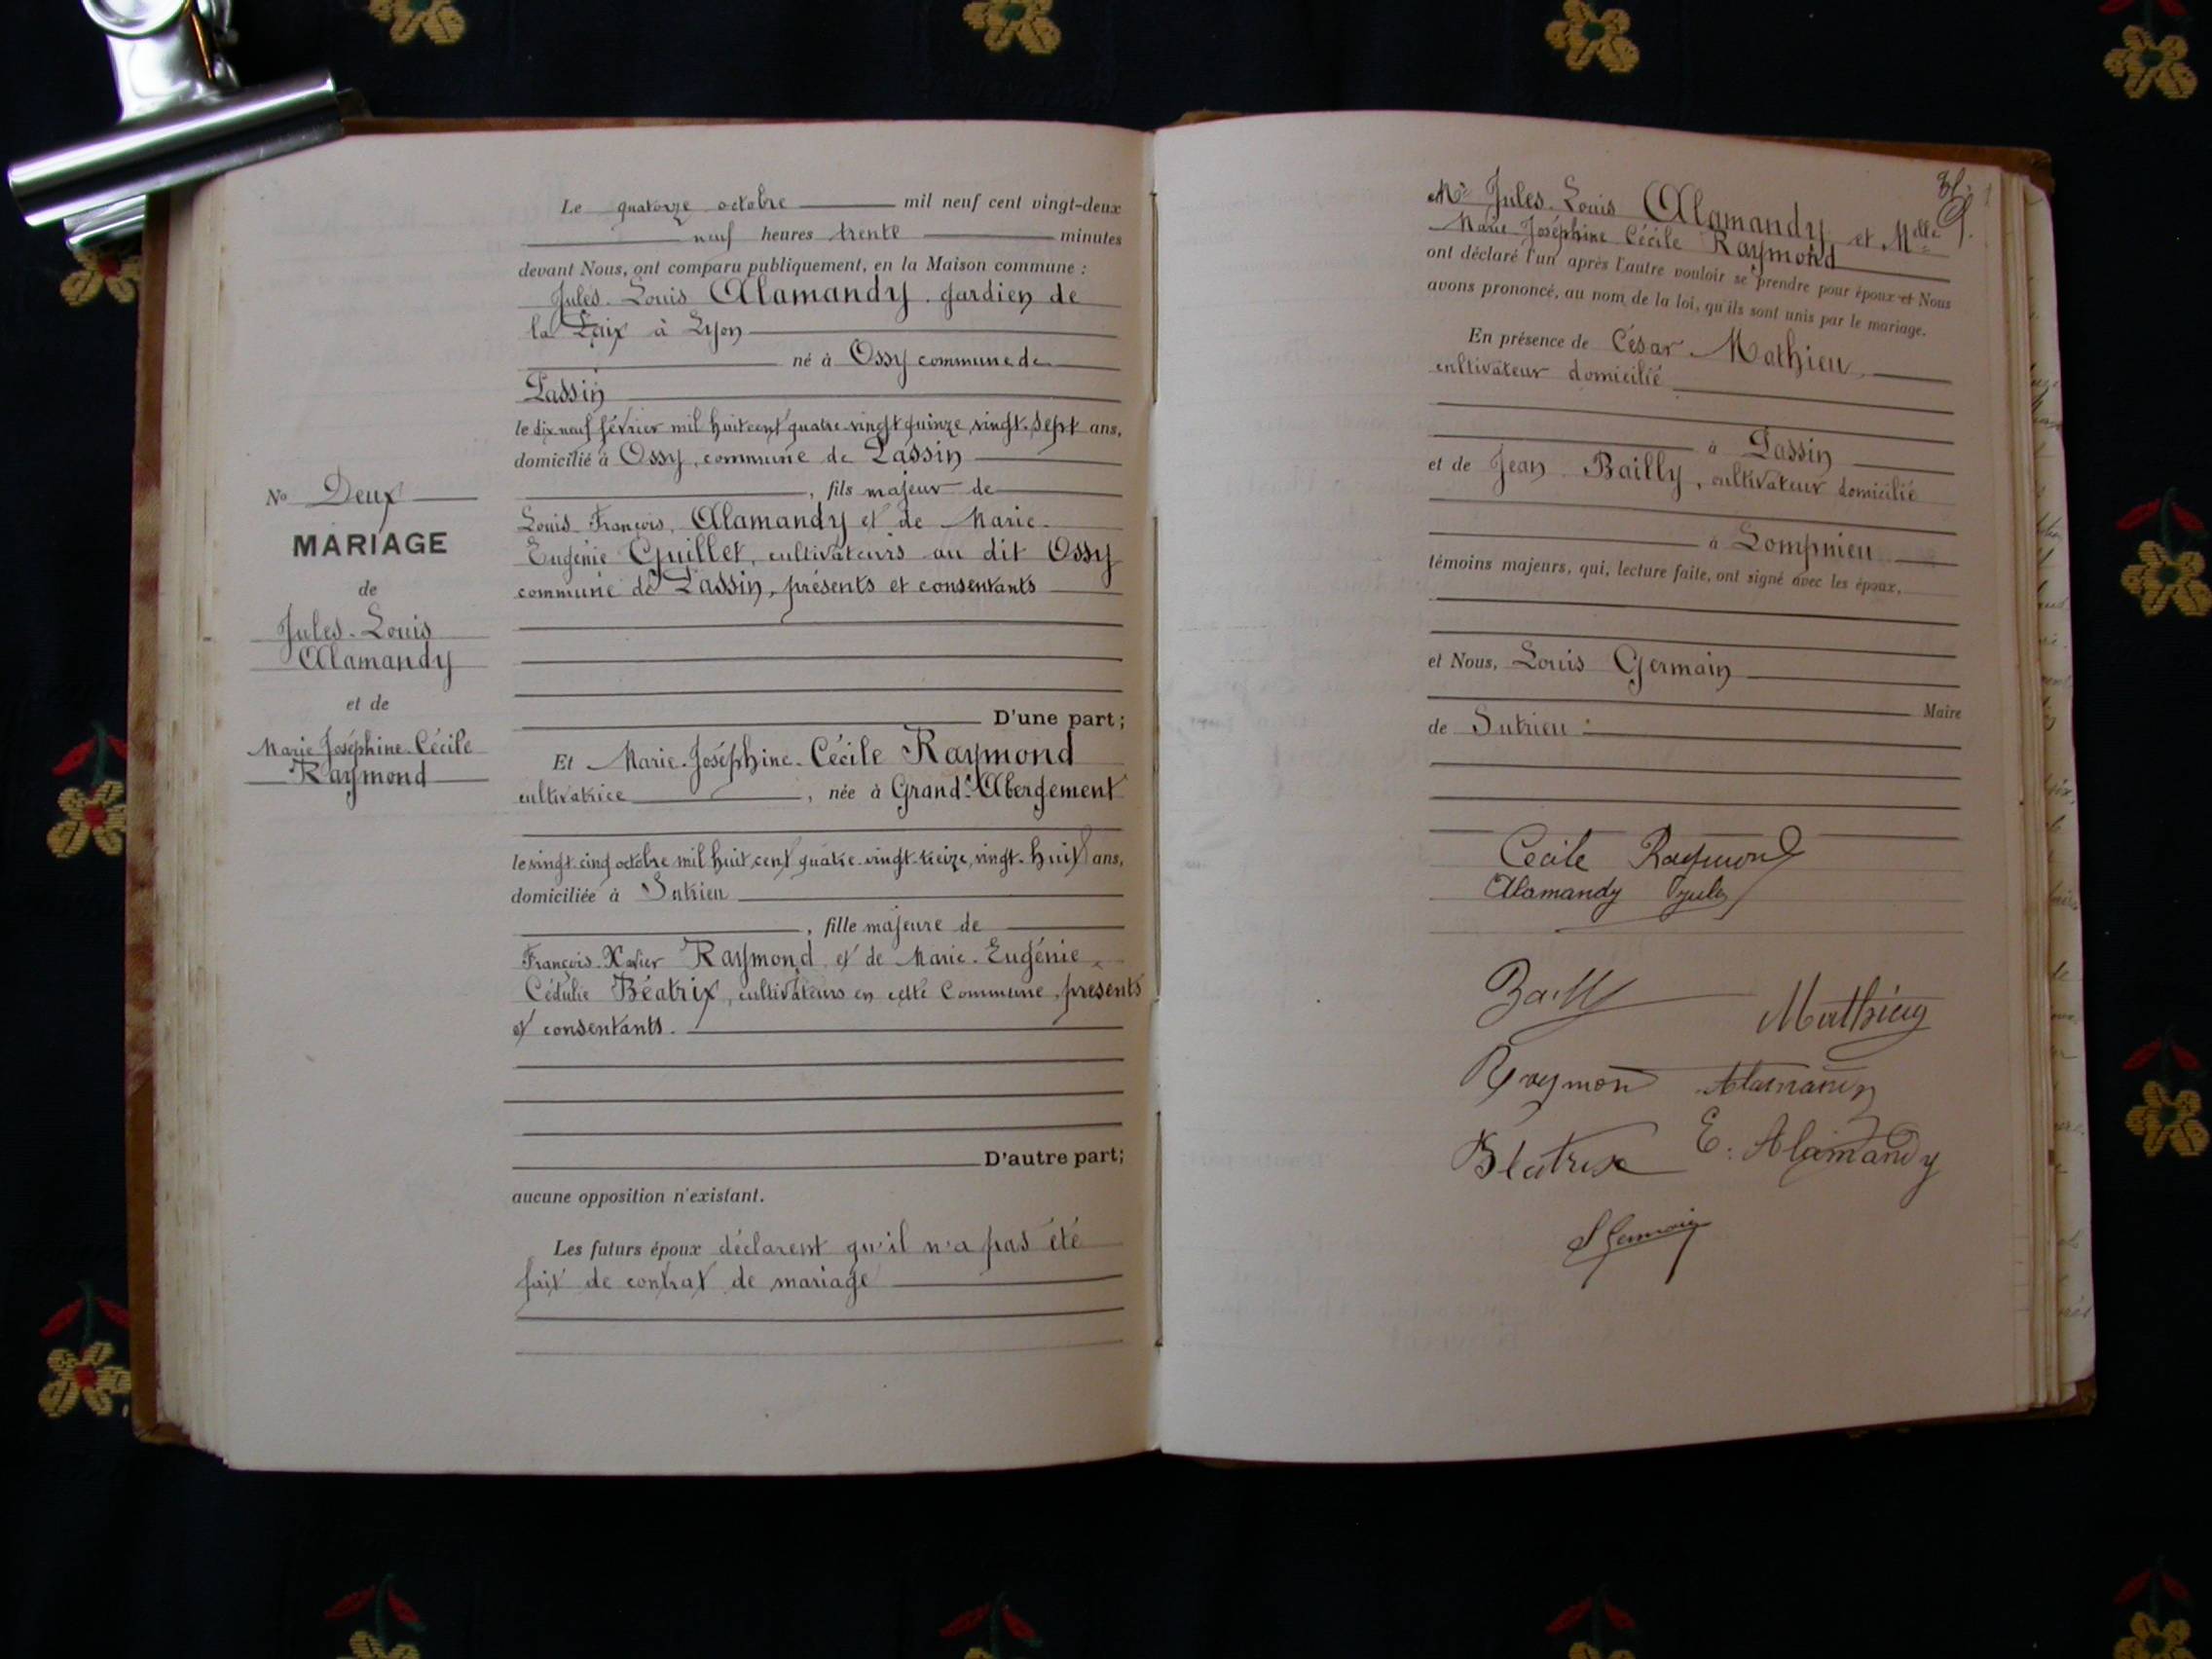 No Deux
MARIAGE
de
Jules-Louis
Alamandy
et de
Marie-Joséphine-Cécile
Raymond
Le quatorze octobre mil neuf cent vingt-deux
neuf heures trente minutes
devant Nous, ont comparu publiquement, en la Maison commune :
Jules-Louis Alamandy, gardien de
la Paix à Lyon
né à Ossy commune de
Passin
le dix neuf février mil huit cent quatre-vingt quinze, vingt-sept ans,
domicilié à Ossy, commune de Passin
, fils majeur de
Louis-François, Alamandy et de Marie-
Eugénie Guillet, cultivateurs au dit Ossy
commune de Passin, présents et consentants
D'une part;
Et Marie-Joséphine-Cécile Raymond
cultivatrice , née à Grand-Abergement
le vingt-cinq octobre mil huit cent quatre-vingt-treize, vingt-huit ans,
domiciliée à Sutrieu
, fille majeure de
François-Xavier Raymond et de Marie-Eugénie-
Cédulie Béatrix, cultivateurs en cette Commune, présents
et consentants.
D'autre part;
aucune opposition n'existant.
Les futurs époux déclarent qu'il n'a pas été
fait de contrat de mariage
Mr Jules-Louis Alamandy et Mdlle
Marie-Joséphine Cécile Raymond
ont déclaré l'un après l'autre vouloir se prendre pour époux et Nous
avons prononcé, au nom de la loi, qu'ils sont unis par le mariage.
En présence de César Mathieu,
cultivateur domicilié
à Passin
et de Jean Bailly, cultivateur domicilié
à Lompnieu
témoins majeurs, qui, lecture faite, ont signé avec les époux,
et Nous, Louis Germain
Maire
de Sutrieu :
Cécile Raymond
Alamandy Jules
Bailly Matthieu
Raymond Alamandy
Béatrix E. Alamandy
L Germain